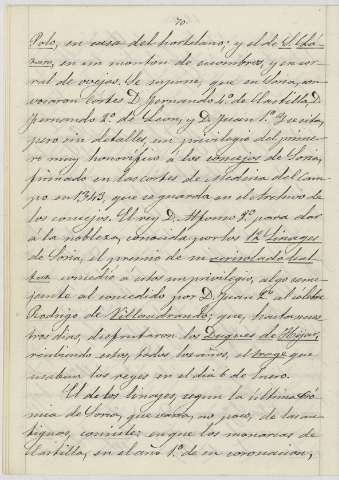 70.
Polo, en casa del hortelano; y el de S. Lá-
zaro, en un monton de escombros, y en cor-
ral de ovejas. Se supone, que en Soria, con-
vocaron Cortes D. Fernando 4.º de Castilla, D.
Fernando 2.º de Leon, y D. Juan 1.º Y se cita,
pero sin detalles, un privilegio del prime-
ro muy honorífico á los concejos de Soria,
firmado en las cortes de Medina del Cam-
po en 1343, que se guarda en el Archivo de
los concejos. El rey D. Alfonso 8.º para dar
á la nobleza, conocida por los 12 Linages
de Soria, el premio de su acrisolada leal-
tad concedió á estos un privilegio, algo seme-
jante al concedido por D. Juan 2.º al célebre
Rodrigo de Villandrando; que, hasta nues-
tros dias, disfrutaron los Duques de Hijar,
recibiendo estos, todos los años, el trage que
usaban los reyes en el dia 6 de Enero.
El de los linajes, segun la última cró-
nica de Soria, que varía, no poco, de las an-
tiguas, consiste en que los monarcas de
Castilla, en el año 1.º de su coronacion,